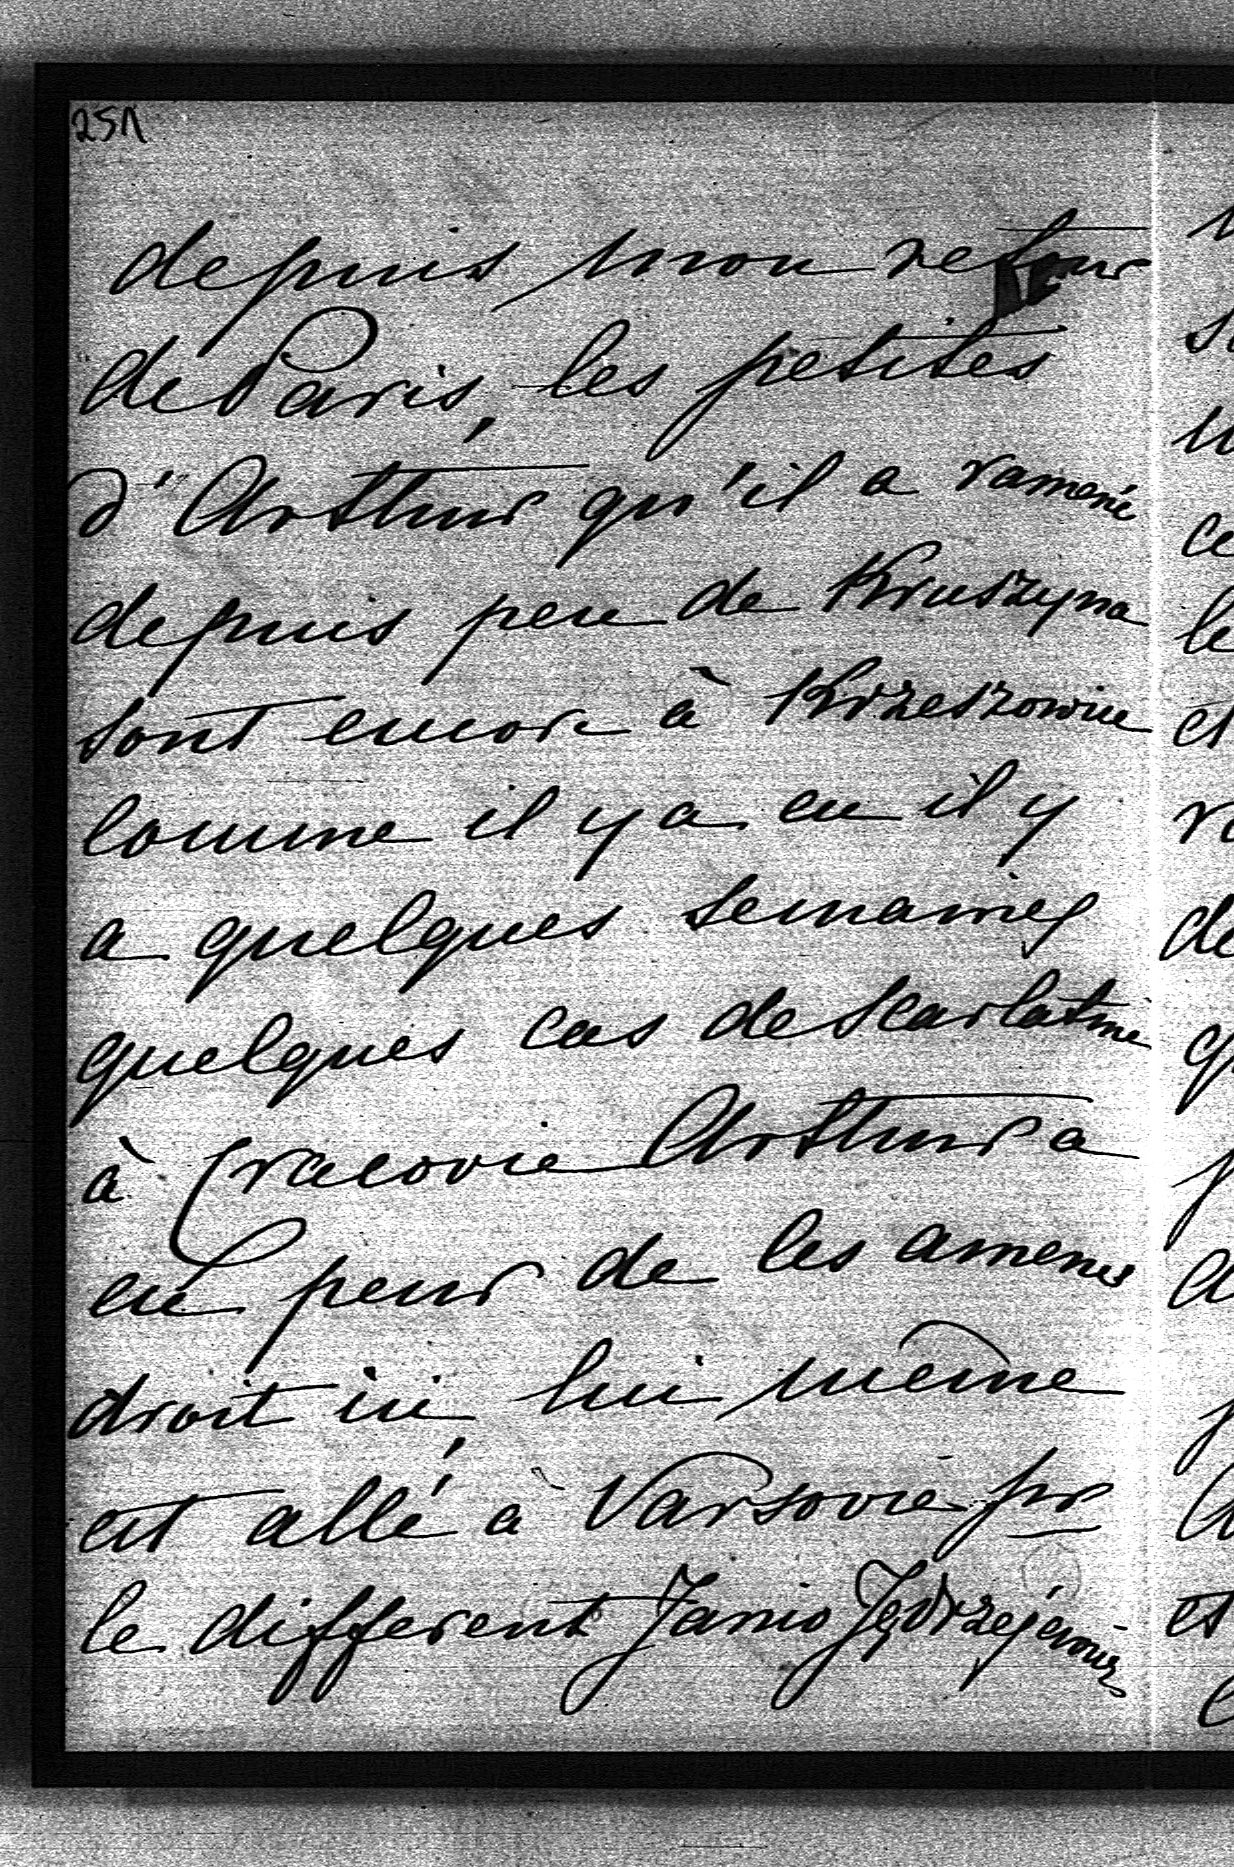 251
depuis mon retour
de Paris, les petites
d'Arthur qu'il a ramené
depuis peu de Kruszyna
sont encore à Krzeszowice
comme il y a eu il y
a quelques semaines
quelques cas de scarlatine
à Cracovie Arthur a
eu peur de les amener
droit ici, lui même
est allé à Varsovie pr
le different Janio Jędrzéjewicz